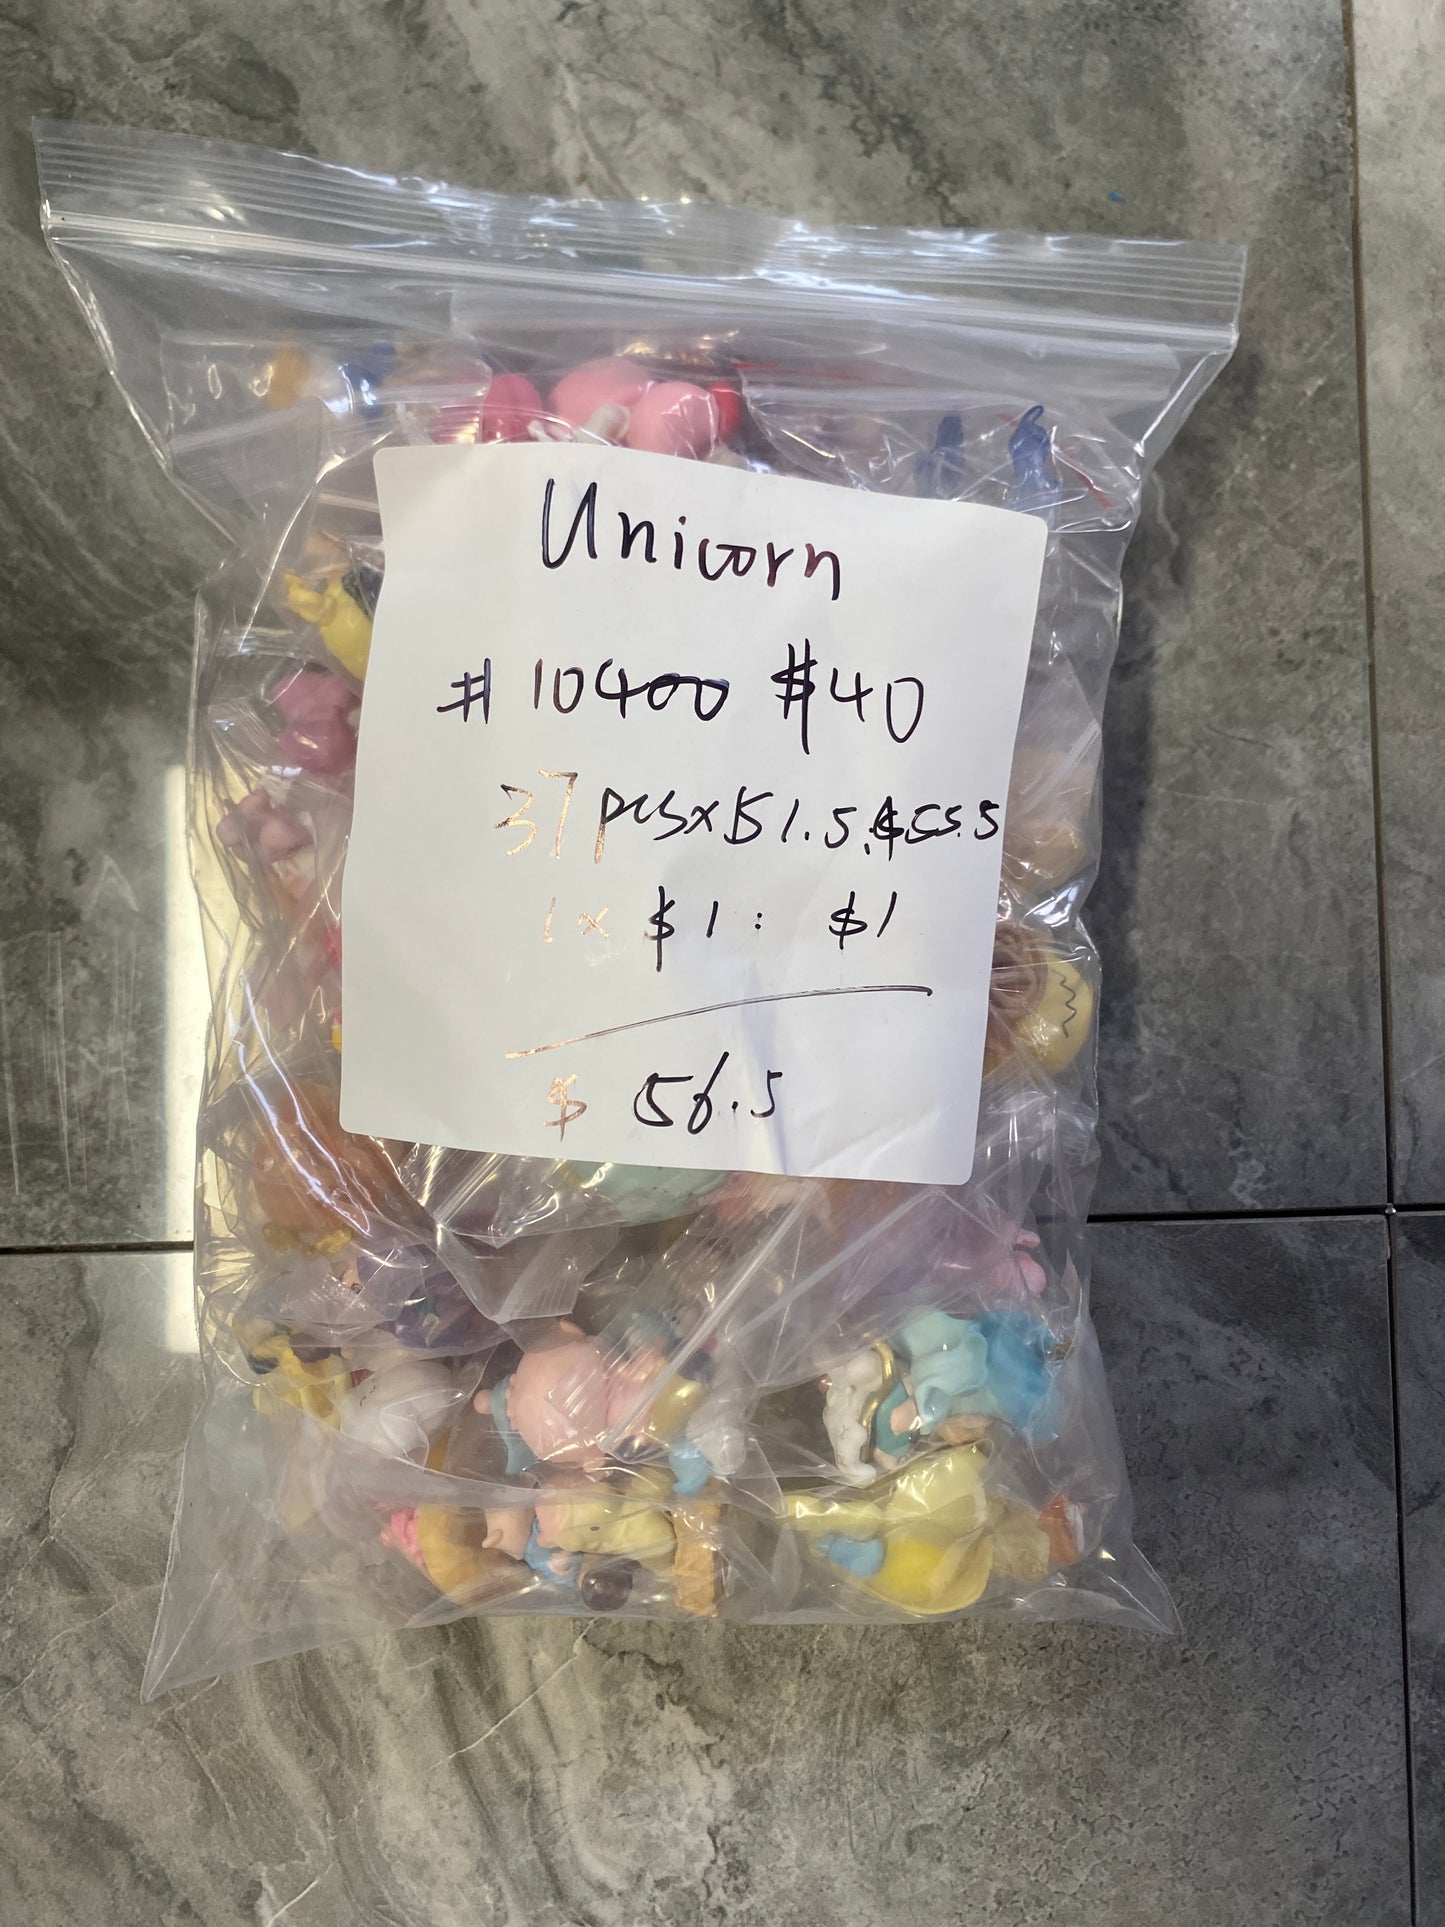 Unicorn
# 10400 $40
37 pcs x $1.5: $55.5
1 x $1 : $1
$ 56.5